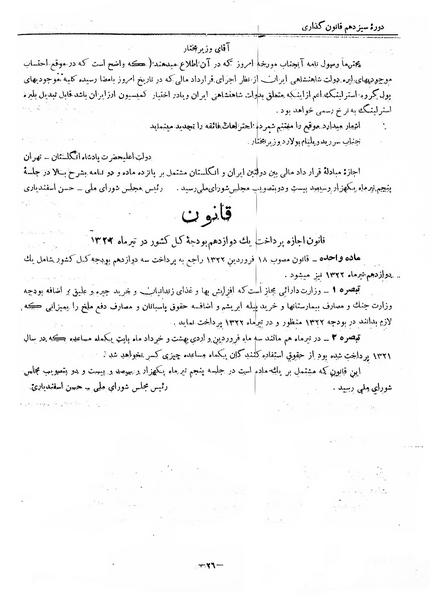 دورهٔ سیزدهم قانون گذاری
آقای وزیر مختار
محترماً وصول نامه آنجناب مورخهٔ امروز که در آن اطلاع میدهند (که واضح است که در موقع احتساب
موجودیهای لیره دولت شاهنشاهی ایران از نظر اجرای قرارداد مالی که در تاریخ امروز بامضا رسیده کلیه موجودیهای
استرلینگ اعم از اینکه متعلق بدولت شاهنشاهی ایران و یا در اختیار کمیسیون ارز ایران باشد قابل تبدیل بلیره
استرلینگ به نرخ رسمی خواهد بود.
اشعار میدارد موقع را مغتنم شمرده احترامات فائقه را تجدید مینماید
جناب سر ریدر ویلیام بولارد وزیر مختار
دولت اعلیحضرت پادشاه انگلستان - تهران
اجازهٔ مبادلهٔ قرارداد مالی بین دولتین ایران و انگلستان مشتمل بر پانزده ماده و دو نامه بشرح بالا در جلسهٔ
پنجم تیر ماه یکهزار و سیصد و بیست و دو بتصویب مجلس شورای ملی رسید. رئیس مجلس شورای ملی - حسن اسفندیاری
قانون
قانون اجازه پرداخت یک دوازدهم بودجهٔ کل کشور در تیر ماه ۱۳۲۲
ماده واحده - قانون مصوب ۱۸ فروردین ۱۳۲۲ راجع به پرداخت سه دوازدهم بودجهٔ کل کشور شامل یک
دوازدهم تیر ماه ۱۳۲۲ نیز میشود.
تبصره ۱ - وزارت دارائی مجاز است که افزایش بها و غذای زندانیان و خرید جیره و علیق بر اضافه بودجه
وزارت جنگ و مصارف بیمارستانها و خرید پیله ابریشم و اضافه حقوق پاسبانان و مصارف دفع ملخ را بمیزانی که
لازم بدانند در بودجه ۱۳۲۲ منظور و در تیر ماه ۱۳۲۲ پرداخت نماید.
تبصره ۲ - در تیر ماه هم مانند سه ماه فروردین و اردی بهشت و خرداد ماه بابت یکماه مساعده که در سال
۱۳۲۱ پرداخت شده بود از حقوق استفاده کنندگان یکماه مساعده چیزی کسر نخواهد شد.
این قانون که مشتمل بر یک ماده است در جلسه پنجم تیر ماه یکهزار و سیصد و بیست و دو بتصویب مجلس
شورای ملی رسید. رئیس مجلس شورای ملی - حسن اسفندیاری
-۲۶-